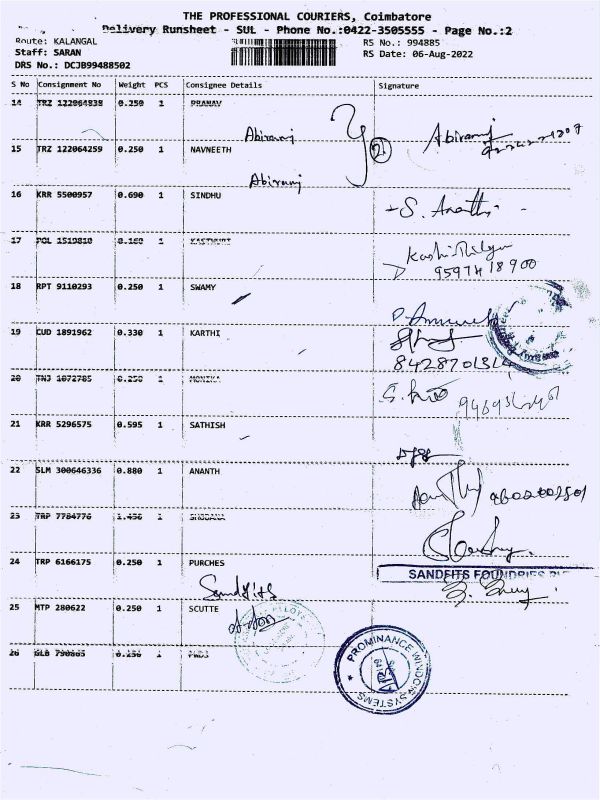 THE PROFESSIONAL COURIERS, Coimbatore
Delivery Runsheet - SUL - Phone No.:0422-3505555 - Page No.:2
Route: KALANGAL RS No.: 994885
Staff: SARAN RS Date: 06-Aug-2022
DRS No.: DCJB99488502
S No Consignment No Weight PCS Consignee Details Signature
14 TRZ 122064838 0.250 1 PRANAV
Abiramj Abiramj
15 TRZ 122064259 0.250 1 NAVNEETH 2
Abiramj
16 KRR 5500957 0.690 1 SINDHU
S. Ananthi
17 POL 1519810 0.160 1 KASTHURI
9597418900
18 RPT 9110293 0.250 1 SWAMY
19 CUD 1891962 0.330 1 KARTHI
20 TNJ 1072785 0.250 1 MONIKA
21 KRR 5296575 0.595 1 SATHISH
22 SLM 300646336 0.880 1 ANANTH
23 TRP 7784776 1.450 1 SHOBANA
24 TRP 6166175 0.250 1 PURCHES
Sandfits SANDFITS FOUNDRIES
25 MTP 280622 0.250 1 SCUTTE
26 GLB 1
PROMINANCE WINDOW SYSTEMS